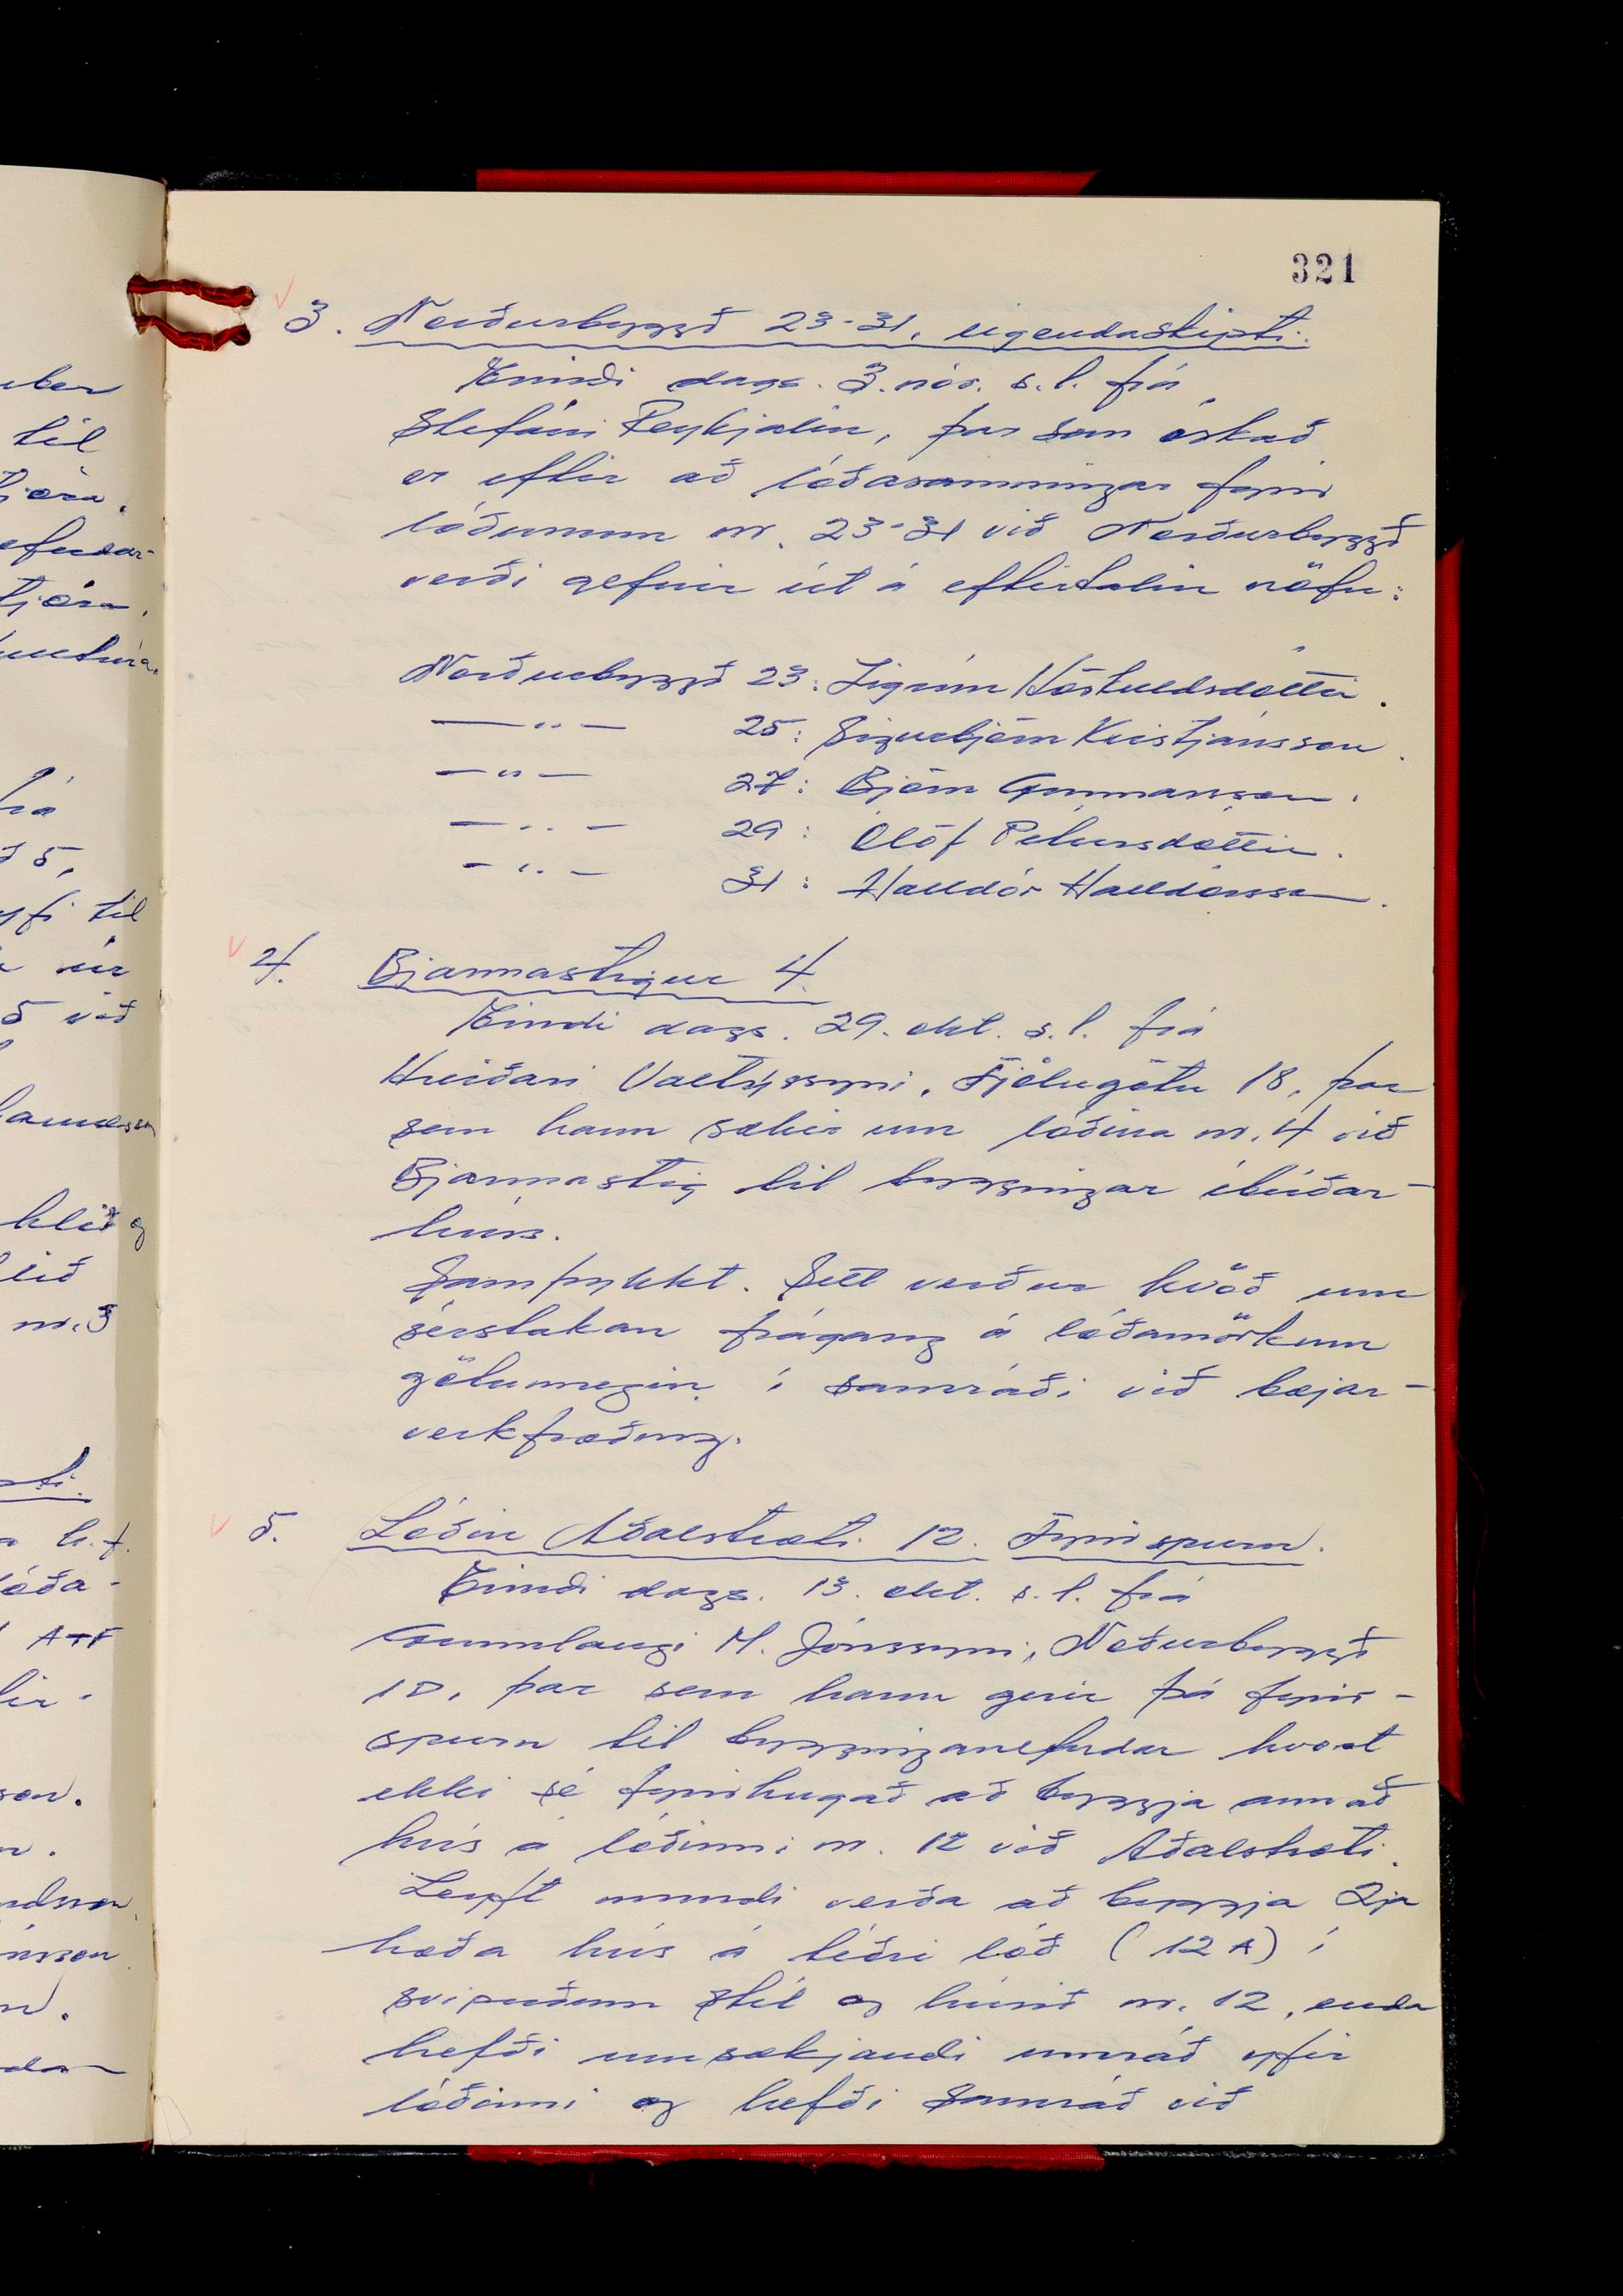 321
3. Norðurbyggð 23-31, eigendaskipti.
Erindi dags. 3. nóv. s.l. frá
Stefáni Reykjalín, þar sem óskað
er eftir að lóðasamningar fyrir
lóðunum nr. 23-31 við Norðurbyggð
verði gefnir út á eftirtalin nöfn:
Norðurbyggð 23: Sigrún Höskuldsdóttir.
— " — 25: Sigurbjörn Kristjánsson.
— " — 27: Björn Gunnarsson.
— " — 29: Ólöf Pétursdóttir.
— " — 31: Halldór Halldórsson.
4. Bjarmastígur 4.
Erindi dags. 29. okt. s.l. frá
Hreiðari Valtýssyni, Fjólugötu 18, þar
sem hann sækir um lóðina nr. 4 við
Bjarmastíg til byggingar íbúðar-
húss.
Samþykkt. Sett verður kvöð um
sérstakan frágang á lóðamörkum
götumegin í samráði við bæjar-
verkfræðing.
5. Lóðin Aðalstræti 12. Fyrirspurn.
Erindi dags. 13. okt. s.l. frá
Gunnlaugi M. Jónssyni, Norðurbyggð
1D, þar sem hann gerir þá fyrir-
spurn til bygginganefndar hvort
ekki sé fyrirhugað að byggja annað
hús á lóðinni nr. 12 við Aðalstræti.
Leyft mundi verða að byggja 2ja
hæða hús á téðri lóð (12A) í
svipuðum stíl og húsið nr. 12, enda
hefði umsækjandi umráð yfir
lóðinni og hefði samráð við
til
til
5 við
nr. 3
h.f.
lóða-